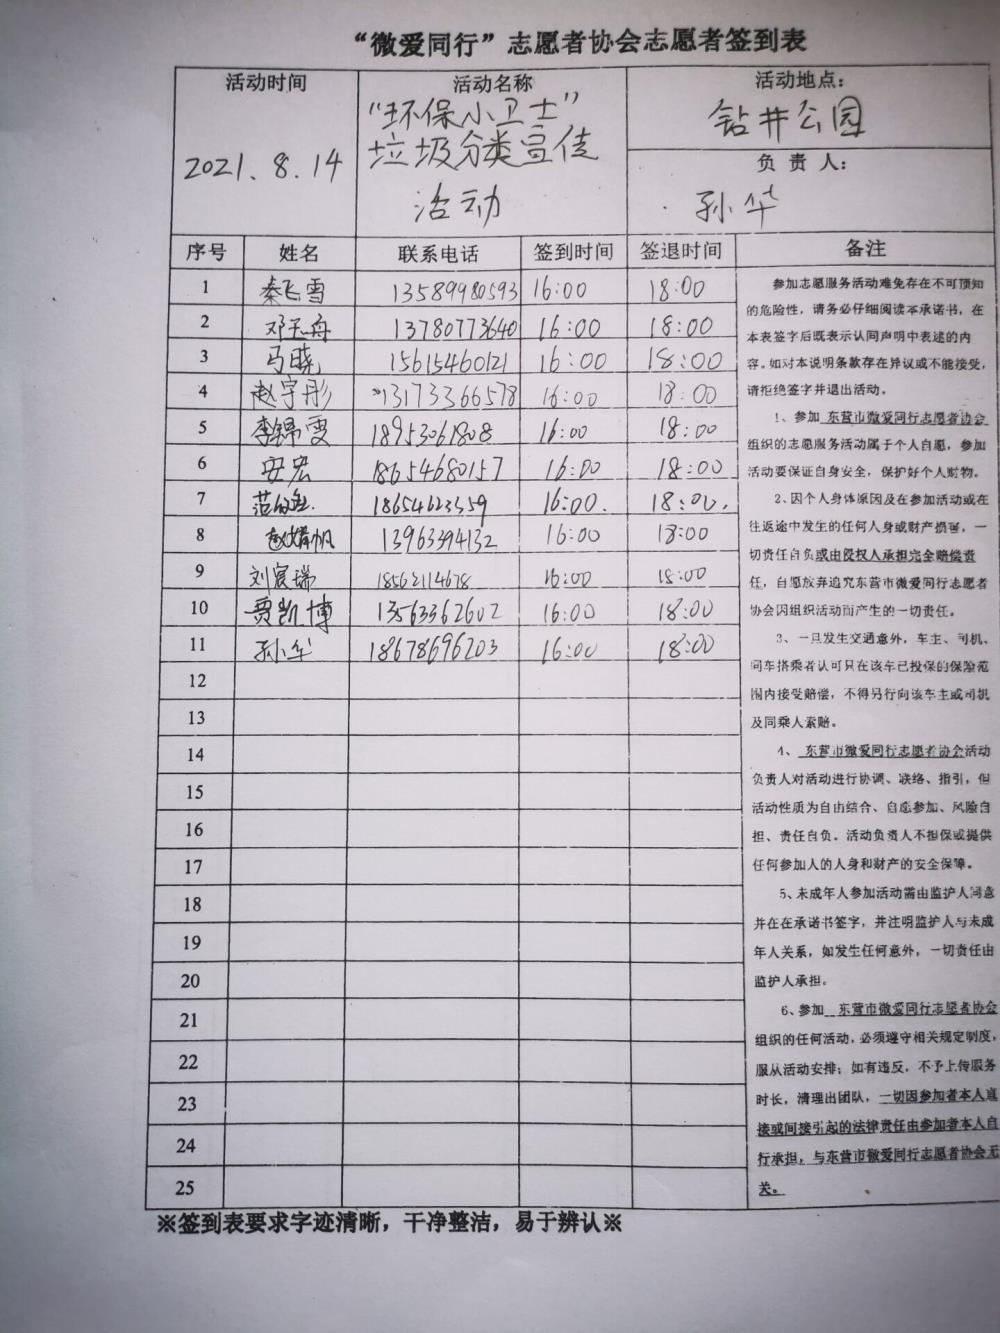 “微爱同行”志愿者协会志愿者签到表
活动时间
2021.8.14
活动名称
“环保小卫士”
垃圾分类宣传
活动
活动地点：
钻井公园
负责人：
孙华
序号 姓名 联系电话 签到时间 签退时间 备注
1 秦飞雪 13589980593 16:00 18:00
2 邓玉舟 13780773640 16:00 18:00
3 马晓 15615460121 16:00 18:00
4 赵宇彤 13173366578 16:00 18:00
5 李锦雯 18953061808 16:00 18:00
6 安宏 18654680157 16:00 18:00
7 18654623559 16:00. 18:00.
8 13963394132 16:00 18:00
9 刘宸瑞 18562114678 16:00 18:00
10 贾凯博 13563362602 16:00 18:00
11 孙华 18678696203 16:00 18:00
12
13
14
15
16
17
18
19
20
21
22
23
24
25
参加志愿服务活动难免存在不可预知
的危险性，请务必仔细阅读本承诺书，在
本表签字后既表示认同声明中表述的内
容。如对本说明条款存在异议或不能接受，
请拒绝签字并退出活动。
1、参加 东营市微爱同行志愿者协会
组织的志愿服务活动属于个人自愿，参加
活动要保证自身安全，保护好个人财物。
2、因个人身体原因及在参加活动或在
往返途中发生的任何人身或财产损害，一
切责任自负或由侵权人承担完全赔偿责
任，自愿放弃追究东营市微爱同行志愿者
协会因组织活动而产生的一切责任。
3、一旦发生交通意外，车主、司机、
同车搭乘者认可只在该车已投保的保险范
围内接受赔偿，不得另行向该车主或司机
及同乘人索赔。
4、东营市微爱同行志愿者协会活动
负责人对活动进行协调、联络、指引，但
活动性质为自由结合、自愿参加、风险自
担、责任自负。活动负责人不担保或提供
任何参加人的人身和财产的安全保障。
5、未成年人参加活动需由监护人同意
并在在承诺书签字，并注明监护人与未成
年人关系，如发生任何意外，一切责任由
监护人承担。
6、参加 东营市微爱同行志愿者协会
组织的任何活动，必须遵守相关规定制度，
服从活动安排；如有违反，不予上传服务
时长，清理出团队，一切因参加者本人直
接或间接引起的法律责任由参加者本人自
行承担，与东营市微爱同行志愿者协会无
关。
※签到表要求字迹清晰，干净整洁，易于辨认※